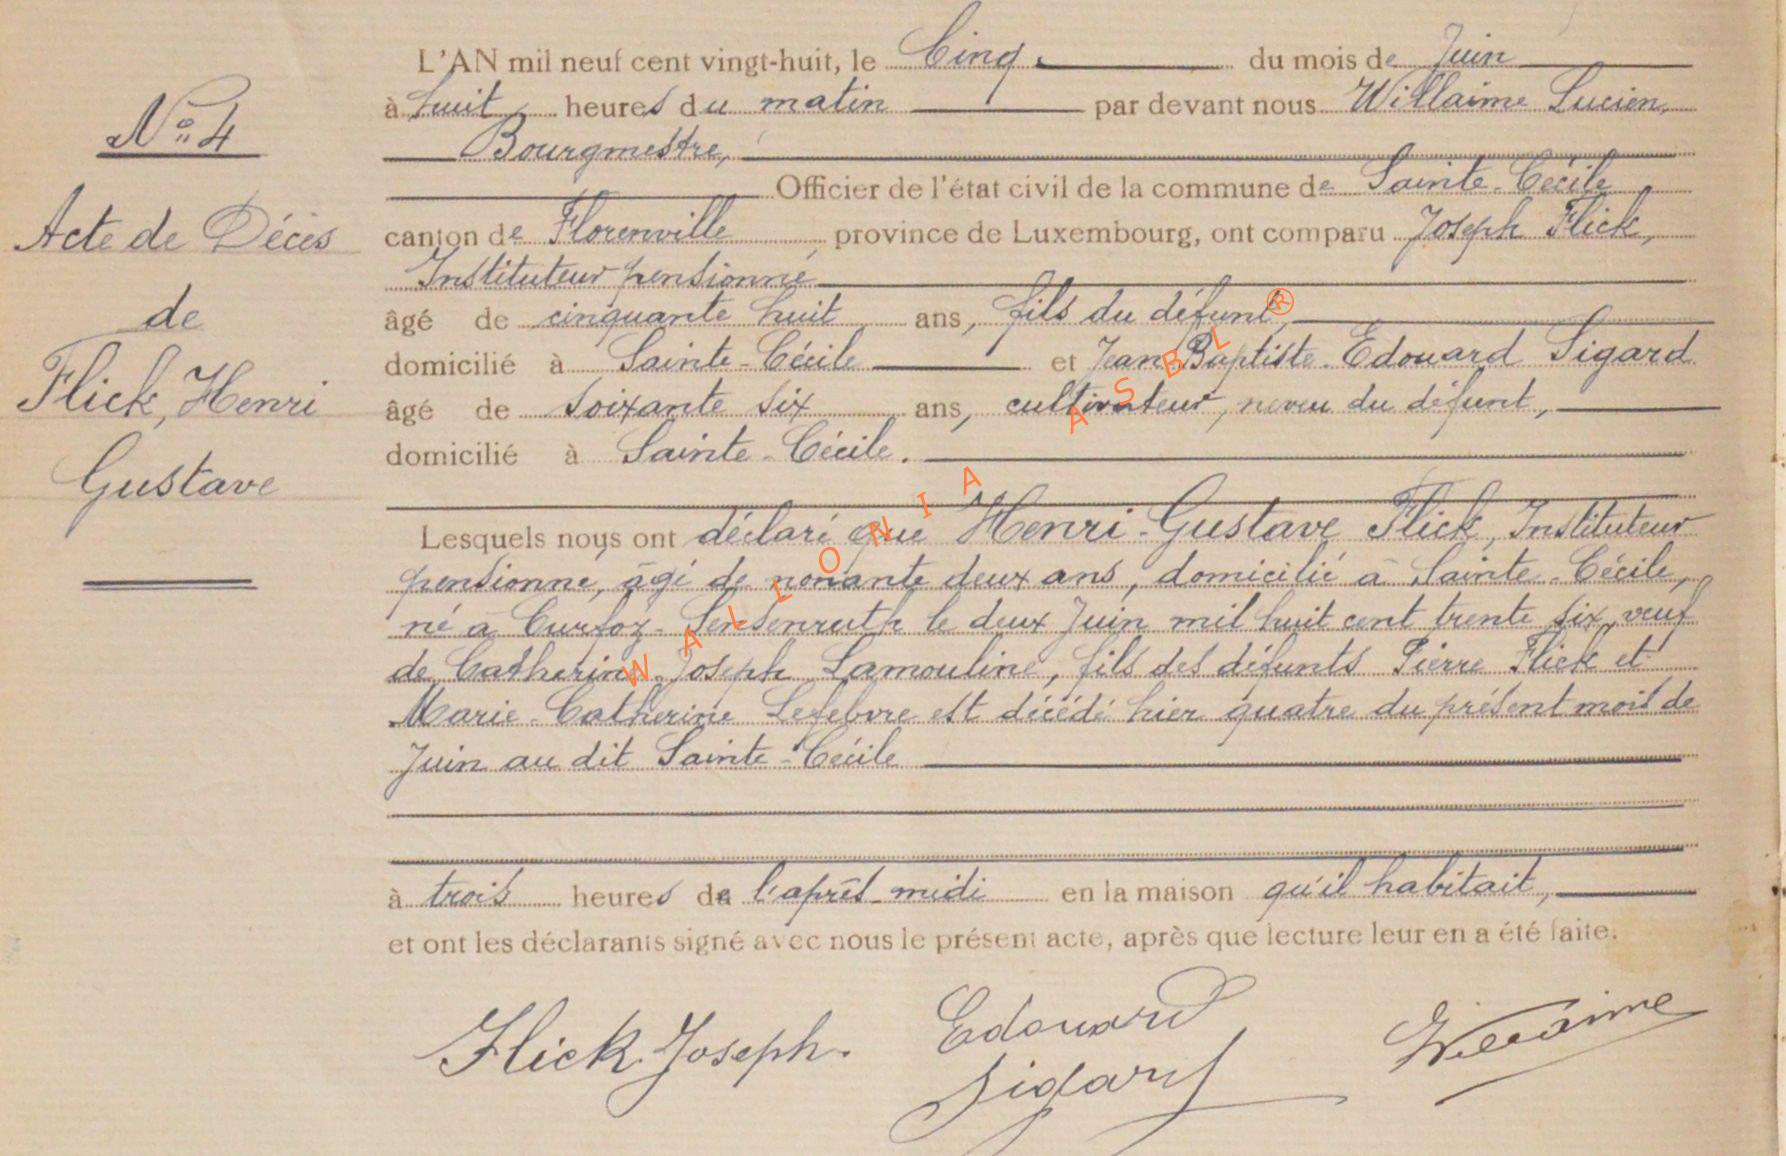 N° 4
Acte de Décès
de
Flick, Henri
Gustave
L'AN mil neuf cent vingt-huit, le Cinq du mois de Juin
à huit heures du matin par devant nous Willaime Lucien,
Bourgmestre,
Officier de l'état civil de la commune de Sainte-Cécile
canton de Florenville, province de Luxembourg, ont comparu Joseph Flick,
Instituteur pensionné
âgé de cinquante huit ans, fils du défunt,
domicilié à Sainte-Cécile et Jean-Baptiste-Edouard Sigard
âgé de soixante six ans, cultivateur, neveu du défunt,
domicilié à Sainte-Cécile.
Lesquels nous ont déclaré que Henri-Gustave Flick, Instituteur
pensionné, âgé de nonante deux ans, domicilié à Sainte-Cécile,
né à Curfoz-Sensenruth le deux Juin mil huit cent trente six, veuf
de Catherine Joseph Lamouline, fils des défunts Pierre Flick et
Marie-Catherine Lefebvre est décédé hier quatre du présent mois de
Juin au dit Sainte-Cécile
à trois heures de l'après-midi en la maison qu'il habitait,
et ont les déclarants signé avec nous le présent acte, après que lecture leur en a été faite.
Flick Joseph.
Edouard
Sigard
Willaime
WALLONIA ASBL ®